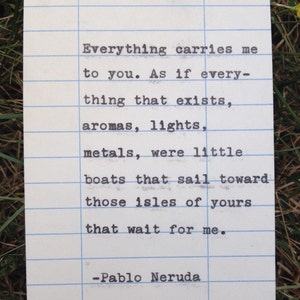 Everything carries me
to you. As if every-
thing that exists,
aromas, lights,
metals, were little
boats that sail toward
those isles of yours
that wait for me.
-Pablo Neruda